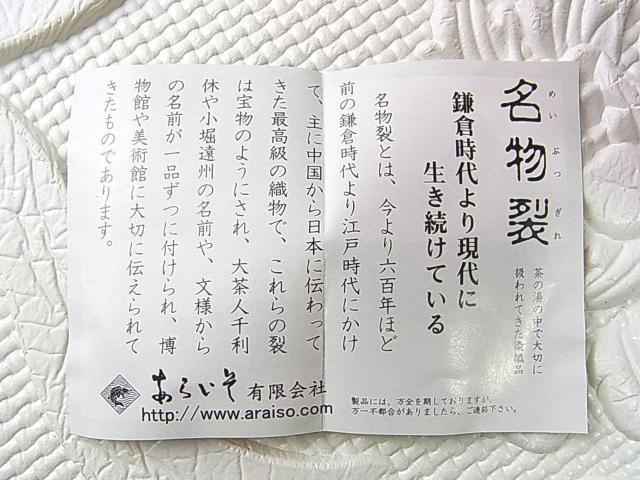 名物裂
めいぶつぎれ
茶の湯の中で大切に
扱われてきた染織品
鎌倉時代より現代に
生き続けている
名物裂とは、今より六百年ほど
前の鎌倉時代より江戸時代にかけ
て、主に中国から日本に伝わって
きた最高級の織物で、これらの裂
は宝物のようにされ、大茶人千利
休や小堀遠州の名前や、文様から
の名前が一品ずつに付けられ、博
物館や美術館に大切に伝えられて
きたものであります。
製品には、万全を期しておりますが、
万一不都合がありましたら、ご連絡下さい。
あらいそ 有限会社
http://www.araiso.com